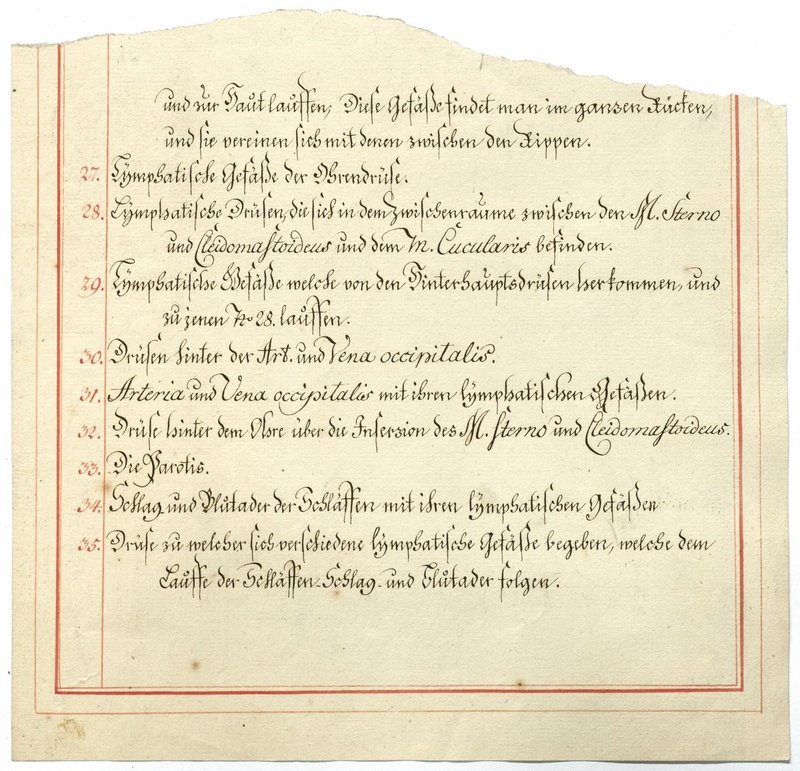 und zur Haut lauffen; Diese Gefäße findet man im ganzen Rücken,
und sie vereinen sich mit denen zwischen den Rippen.
27. Lymphatische Gefäße der Ohrendrüse.
28. Lymphatische Drüsen, die sich in dem Zwischenraume zwischen den M. Sterno
und Cleidomastoideus und dem M. Cucularis befinden.
29. Lymphatische Gefäße welche von den Hinterhauptsdrüsen herkommen, und
zu jenen No 28. lauffen.
30. Drüsen hinter der Art. und Vena occipitalis.
31. Arteria und Vena occipitalis mit ihren lymphatischen Gefäßen.
32. Drüse hinter dem Ohre über die Insersion des M. Sterno und Cleidomastoideus.
33. Die Parotis.
34. Schlag und Blutader der Schläffen mit ihren lymphatischen Gefäßen
35. Drüse zu welcher sich verschiedene lymphatische Gefäße begeben, welche dem
Lauffe der Schläffen-Schlag- und Blutader folgen.